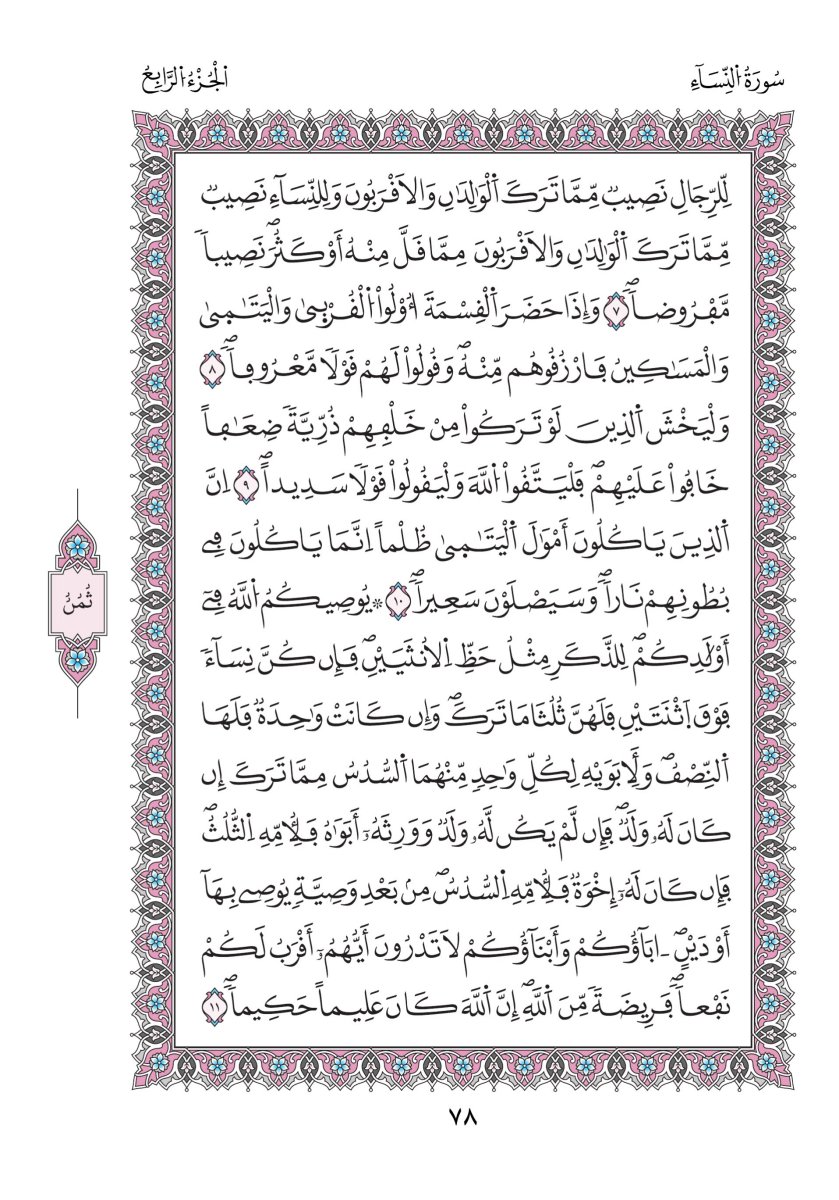 سُورَةُ اُ۬لنِّسَآءِ
اُ۬لْجُزْءُ اُ۬لرَّابِعُ
لِّلرِّجَالِ نَصِيبٞ مِّمَّا تَرَكَ اَ۬لْوَٰلِدَٰنِ وَالَاقْرَبُونَ وَلِلنِّسَآءِ نَصِيبٞ
مِّمَّا تَرَكَ اَ۬لْوَٰلِدَٰنِ وَالَاقْرَبُونَ مِمَّا قَلَّ مِنْهُ أَوْ كَثُرَۖ نَصِيباٗ
مَّفْرُوضاٗۖ ٧ وَإِذَا حَضَرَ اَ۬لْقِسْمَةَ أُوْلُواْ اُ۬لْقُرْبَىٰ وَالْيَتَٰمَىٰ
وَالْمَسَٰكِينُ فَارْزُقُوهُم مِّنْهُۖ وَقُولُواْ لَهُمْ قَوْلاٗ مَّعْرُوفاٗۖ ٨
وَلْيَخْشَ اَ۬لذِينَ لَوْ تَرَكُواْ مِنْ خَلْفِهِمْ ذُرِّيَّةٗ ضِعَٰفاً
خَافُواْ عَلَيْهِمْۖ فَلْيَتَّقُواْ اُ۬للَّهَ وَلْيَقُولُواْ قَوْلاٗ سَدِيداًۖ ٩ اِنَّ
اَ۬لذِينَ يَاكُلُونَ أَمْوَٰلَ اَ۬لْيَتَٰمَىٰ ظُلْماً اِنَّمَا يَاكُلُونَ فِے
بُطُونِهِمْ نَاراٗۖ وَسَيَصْلَوْنَ سَعِيراٗۖ ١٠ ۞يُوصِيكُمُ اُ۬للَّهُ فِےٓ
أَوْلَٰدِكُمْۖ لِلذَّكَرِ مِثْلُ حَظِّ اِ۬لُانثَيَيْنِۖ فَإِن كُنَّ نِسَآءٗ
فَوْقَ اَ۪ثْنَتَيْنِ فَلَهُنَّ ثُلُثَا مَا تَرَكَۖ وَإِن كَانَتْ وَٰحِدَةٞ فَلَهَا
اَ۬لنِّصْفُۖ وَلِأَبَوَيْهِ لِكُلِّ وَٰحِدٖ مِّنْهُمَا اَ۬لسُّدُسُ مِمَّا تَرَكَ إِن
كَانَ لَهُۥ وَلَدٞۖ فَإِن لَّمْ يَكُن لَّهُۥ وَلَدٞ وَوَرِثَهُۥٓ أَبَوَٰهُ فَلِأُمِّهِ اِ۬لثُّلُثُۖ
فَإِن كَانَ لَهُۥٓ إِخْوَةٞ فَلِأُمِّهِ اِ۬لسُّدُسُۖ مِنۢ بَعْدِ وَصِيَّةٖ يُوصِے بِهَآ
أَوْ دَيْنٍۖ ـ ابَآؤُكُمْ وَأَبْنَآؤُكُمْ لَا تَدْرُونَ أَيُّهُمُۥٓ أَقْرَبُ لَكُمْ
نَفْعاٗۖ فَرِيضَةٗ مِّنَ اَ۬للَّهِۖ إِنَّ اَ۬للَّهَ كَانَ عَلِيماً حَكِيماٗۖ ١١
ثُمُنُ
٧٨